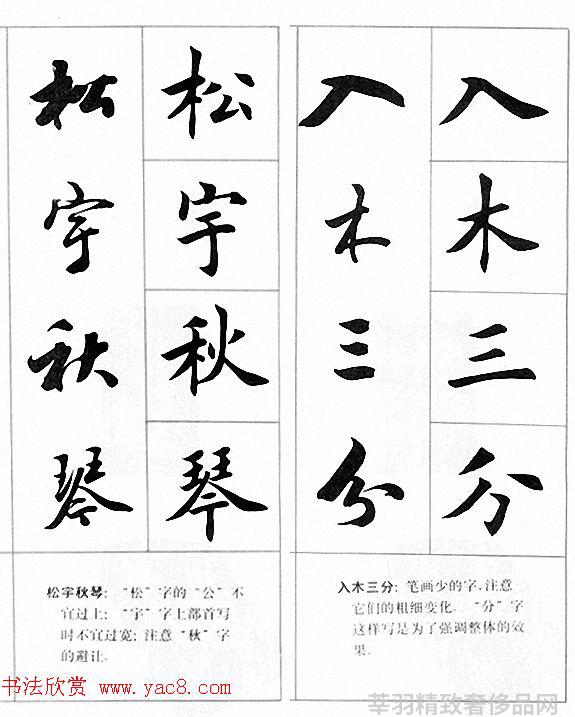 松 松 入 入
宇 宇 木 木
秋 秋 三 三
琴 琴 分 分
松宇秋琴：“松”字的“公”不
宜过上；“宇”字上部首写
时不宜过宽；注意“秋”字
的避让。
入木三分：笔画少的字，注意
它们的粗细变化。“分”字
这样写是为了强调整体的效
果。
书法欣赏 www.yac8.com
莘羽精致奢侈品网